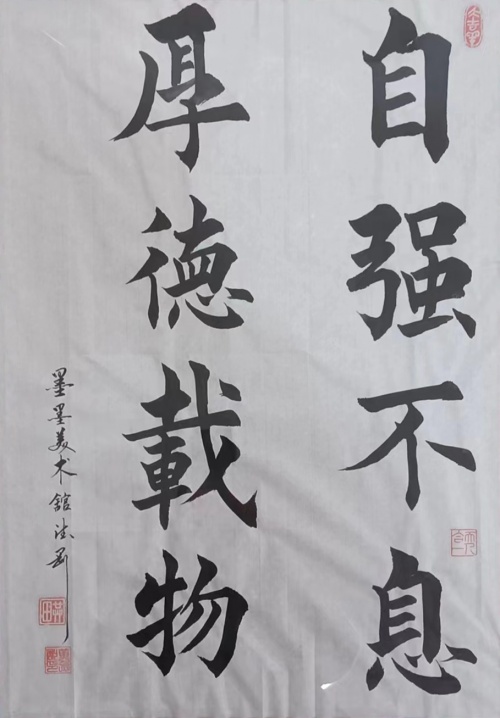 自强不息
厚德載物
墨墨美术舘